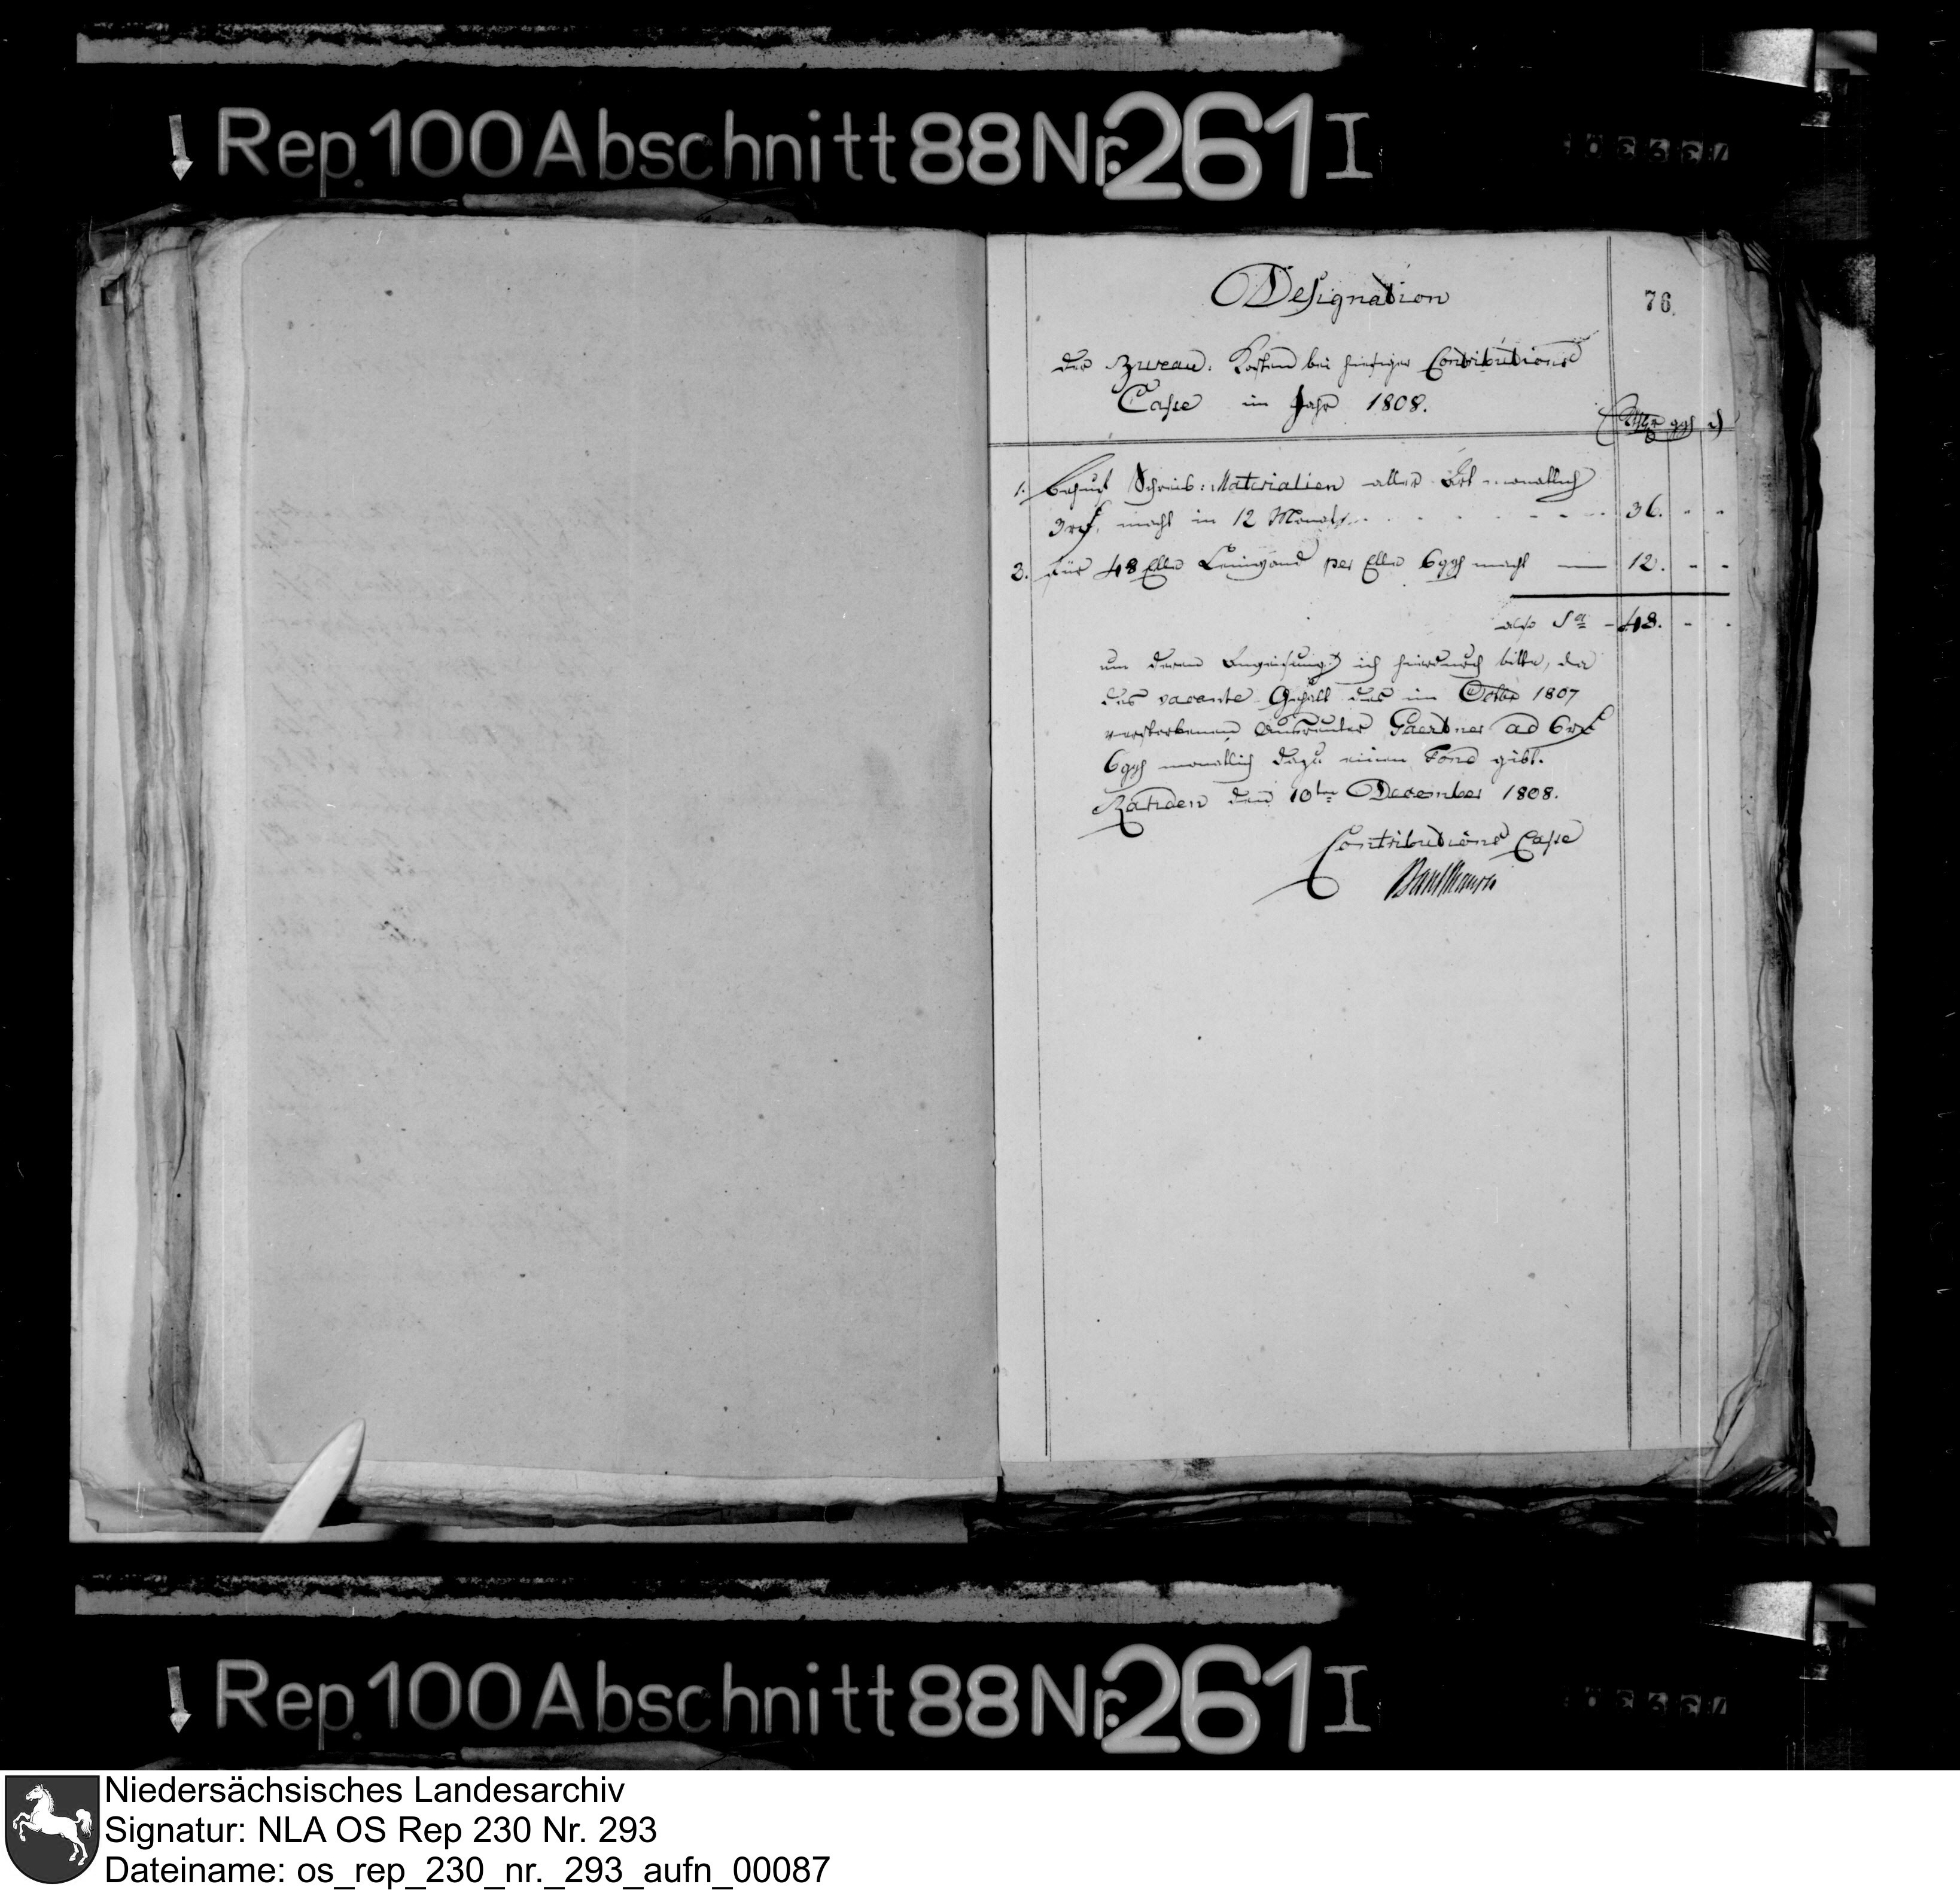 Rep. 100 Abschnitt 88 Nr. 261 I
Designation
76.
der Bureau. Kosten bei hiesiger Contributions
Casse im Jahr 1808.
Rthlr ggl d
1. behuf Schreib: Materialien aller Art monatlich
3 rt, macht in 12 Monath - - - - - 36. - -
2. für 48 Elle Leinwand per Elle 6 ggl macht — 12. - -
also Sa - 48. - -
um deren Anweisung ich hierdurch bitte, da
das vacante Gehalt des im Octbr 1807
verstorbenen Gaertner ad 6 rt
6 ggl monatlich dazu einen Fond gibt.
Rahden den 10ten December 1808.
Contributions Casse
Rep. 100 Abschnitt 88 Nr. 261 I
Niedersächsisches Landesarchiv
Signatur: NLA OS Rep 230 Nr. 293
Dateiname: os_rep_230_nr._293_aufn_00087